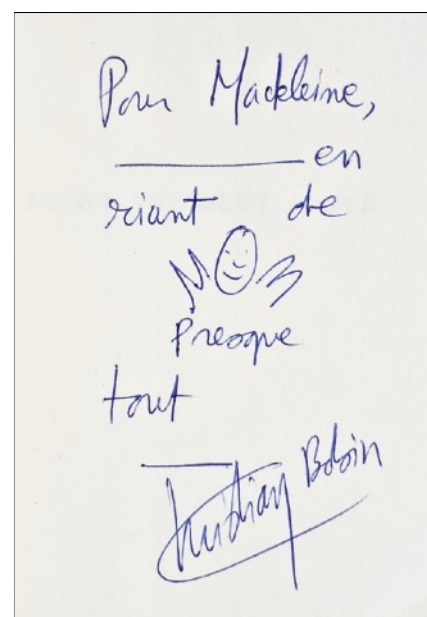 Pour Madeleine,
en
riant de
Presque
tout
Christian Bobin